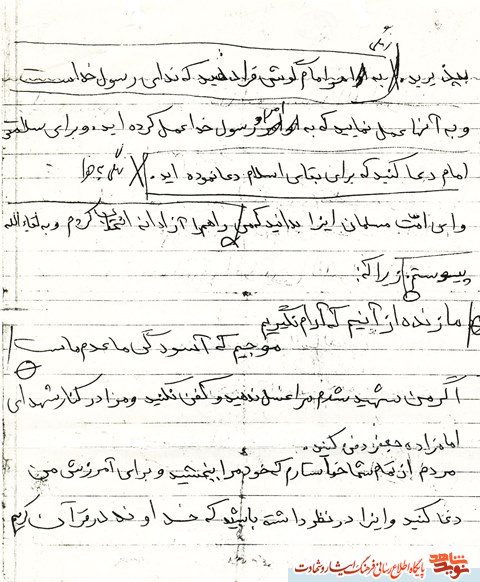 زندگی
بپذیرید. به اوامر امام گوش فرا دهید که ندای رسول خداست
و به آنها عمل نمایید که به اوامر رسول خدا عمل کرده اید. و برای سلامتی
امام دعا کنید که برای بقای اسلام دعا نموده اید.
و ای امت مسلمان اینرا بدانید که من راهم را آزادانه انتخاب کردم و به لقاء الله
پیوستم. زیرا که:
ما زنده از آنیم که آرام نگیریم
موجیم که آسودگی ما عدم ماست
اگر من شهید شدم مرا غسل ندهید و کفن نکنید و مرا در کنار شهدای
امامزاده جعفر دفن کنید.
مردم از تمام شما خواستارم که خود مرا ببخشید و برای آمرزش من
دعا کنید و اینرا در نظر داشته باشید که خداوند در قرآن کریم
نوید شاهد
پایگاه اطلاع رسانی فرهنگ ایثار و شهادت